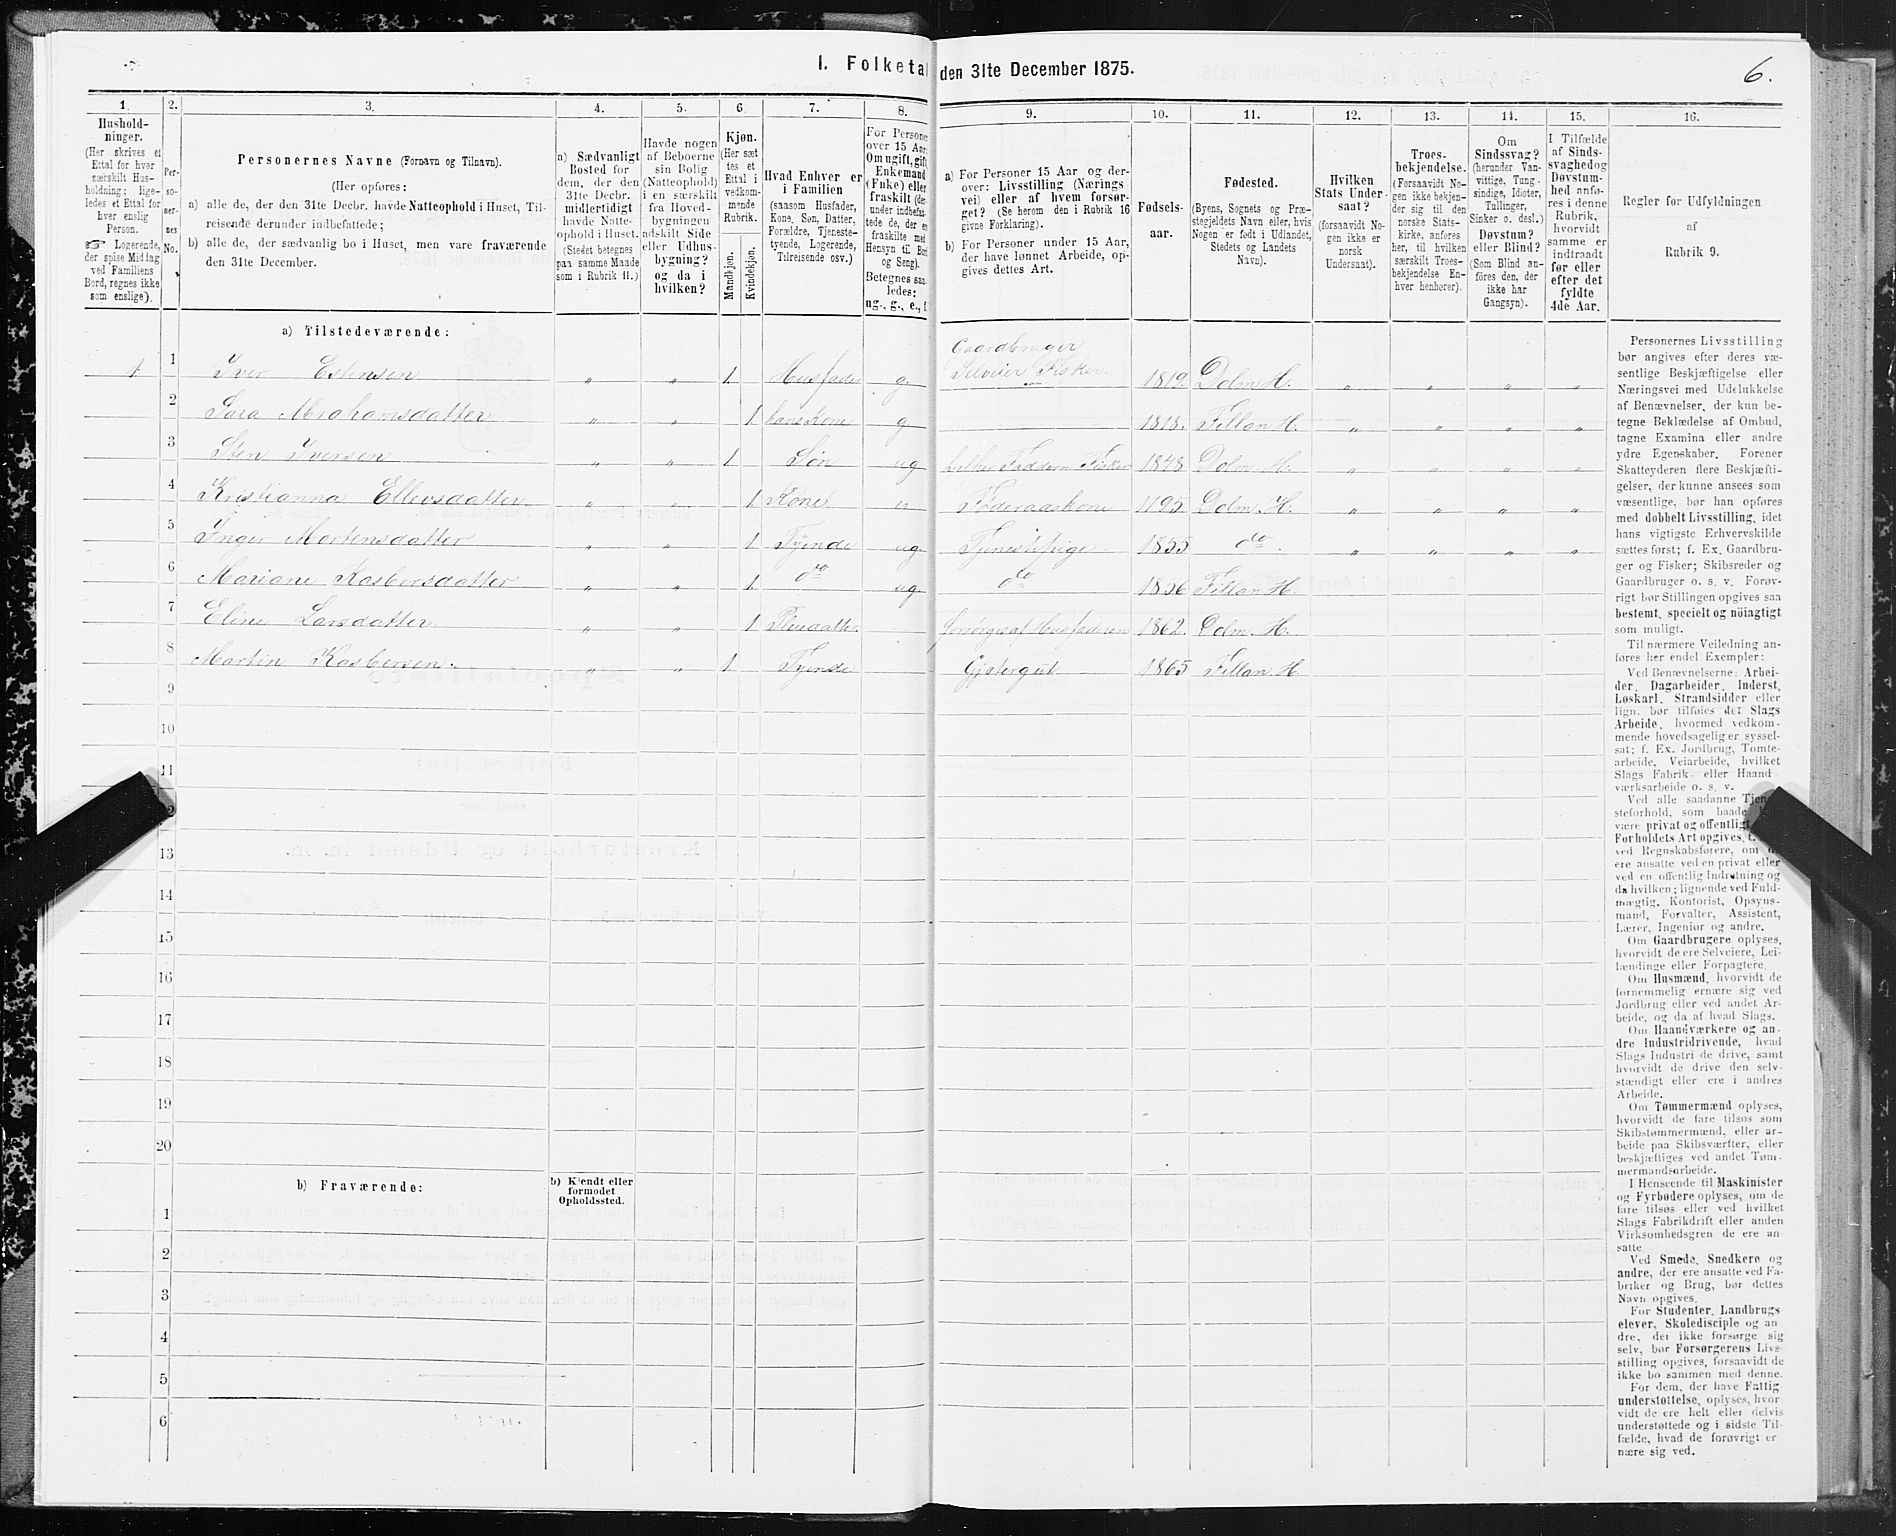 I. Folketal den 31te December 1875.
6.
1.
Hushold-
ninger.
(Her skrives et
Ettal for hver
særskilt Hus-
holdning; lige-
ledes et Ettal for
hver enslig
Person.
Logerende,
der spise Middag
ved Familiens
Bord, regnes ikke
som enslige).
2.
Per-
so-
ner-
nes
No.
3.
Personernes Navne (Fornavn og Tilnavn).
(Her opføres:
a) alle de, der den 31te Decbr. havde Natteophold i Huset, Til-
reisende derunder indbefattede;
b) alle de, der sædvanlig bo i Huset, men vare fraværende
den 31te December.
4.
a) Sædvanligt
Bosted for
dem, der den
31te Decbr.
midlertidigt
havde Natte-
ophold i Huset.
(Stedet betegnes
paa samme Maade
som i Rubrik 11.)
5.
Havde nogen
af Beboerne
sin Bolig
(Natteophold)
i en særskilt
fra Hoved-
bygningen
adskilt Side
eller Udhus-
bygning?
og da i
hvilken?
6.
Kjøn.
(Her sættes
et
Ettal i
vedkom-
mende
Rubrik.
Mandkjøn.
Kvindekjøn.
7.
Hvad Enhver er
i Familien
(saasom Husfader,
Kone, Søn, Datter,
Forældre, Tjeneste-
tyende, Logerende,
Tilreisende osv.)
8.
For Personer
over 15 Aar:
Om ugift, gift,
Enkemand
(Enke) eller
fraskilt
Betegnes saa-
ledes:
ug., g., e., f.
9.
a) For Personer 15 Aar og der-
over: Livsstilling (Nærings
vei) eller af hvem forsør-
get? (Se herom den i Rubrik 16
givne Forklaring).
b) For Personer under 15 Aar,
der have lønnet Arbeide, op-
gives dettes Art.
10.
Fødsels-
aar.
11.
Fødested.
(Byens, Sognets og Præ-
stegjeldets Navn eller, hvis
Nogen er født i Udlandet,
Stedets og Landets
Navn).
12.
Hvilken
Stats Under-
saat?
(forsaavidt No-
gen ikke er
norsk
Undersaat).
13.
Troes-
bekjendelse.
(Forsaavidt No-
gen ikke bekjen-
der sig til den
norske Stats-
kirke, anføres
her, til hvilken
særskilt Troes-
bekjendelse En-
hver henhører).
14.
Om
Sindssvag?
(herunder Van-
vittige, Tung-
sindige, Idioter,
Tullinger,
Sinker o. desl.)
Døvstum?
eller Blind?
(Som Blind an-
føres den, der
ikke har
Gangsyn).
15.
I Tilfælde
af Sinds-
svaghed og
Døvstum-
hed anfø-
res i denne
Rubrik,
hvorvidt
samme er
indtraadt
før eller
efter det
fyldte
4de Aar.
16.
Regler for Udfyldningen
af
Rubrik 9.
a) Tilstedeværende:
1 1 Iver Estensen " " 1 Husfader g. Gaardbruger Selveier Fisker. 1819. Dolm H. " " " "
2 Sara Abrahamsdatter " " 1 hans Kone g 1818. Fillan H. " " " "
3 Sten Iversen " " 1 Søn ug hjelper Faderen Fisker 1848 Dolm H. " " " "
4 Kristianna Ellevsdatter " " 1 Kone e Føderaadskone 1795 Dolm. H. " " " "
5 Inger Mortensdatter " " 1 Tyende ug Tjenestepige 1855 do. " " " "
6 Mariane Kasbersdatter " " 1 do ug do 1856 Fillan H.
7 Eline Larsdatter " " 1 Pleiedatter forsørges af Husfaderen 1862. Dolm H.
8 Martin Kasbersen. " " 1 Tyende Gjetergut 1865 Fillan H.
9
10
11
13
14
15
16
17
18
19
20
b) Fraværende:
b) Kjendt eller
formodet
Opholdssted.
1
2
3
4
5
6
Personernes Livsstilling
bør angives efter deres væ-
sentlige Beskjæftigelse eller
Næringsvei med Udelukkelse
af Benævnelser, der kun be-
tegne Beklædelse af Ombud,
tagne Examina eller andre
ydre Egenskaber. Forener
Skatteyderen flere Beskjæfti-
gelser, der kunne ansees som
væsentlige, bør han opføres
med dobbelt Livsstilling, idet
hans vigtigste Erhvervskilde
sættes først; f. Ex. Gaardbru-
ger og Fisker; Skibsreder og
Gaardbruger o. s. v. Forøv-
rigt bør Stillingen opgives saa
bestemt, specielt og nöiagtigt
som muligt.
Til nærmere Veiledning an-
føres her endel Exempler:
Ved Benævnelserne: Arbei-
der, Dagarbeider, Inderst,
Løskarl, Strandsidder eller
lign. bør tilføies det Slags
Arbeide, hvormed vedkom-
mende hovedsagelig er syssel-
sat; f. Ex. Jordbrug, Tomte-
arbeide, Veiarbeide, hvilket
Slags Fabrik- eller Haand-
værksarbeide o. s. v.
Ved alle saadanne Tjene-
steforhold, som baade
være privat og offentligt
Forholdets Art opgives,
ved Regnskabsførere, om
ere ansatte ved en privat eller
ved en offentlig Indretning og
da hvilken; lignende ved Fuld-
mægtig, Kontorist, Opsyns-
mand, Forvalter, Assistent,
Lærer, Ingeniør og andre.
Om Gaardbrugere oplyses,
hvorvidt de ere Selveiere, Lei-
lændinge eller Forpagtere.
Om Husmænd, hvorvidt de
fornemmelig ernære sig ved
Jordbrug eller ved andet Ar-
beide, og da af hvad Slags.
Om Haandværkere og an-
dre Industridrivende, hvad
Slags Industri de drive, samt
hvorvidt de drive den selv-
stændigt eller ere i andres
Arbeide.
Om Tømmermænd oplyses,
hvorvidt de fare tilsøs som
Skibstømmermænd, eller ar-
beide paa Skibsværfter, eller
beskjæftiges ved andet Tøm-
mermandsarbeide.
I Henseende til Maskinister
og Fyrbødere oplyses, om de
fare tilsøs eller ved hvilket
Slags Fabrikdrift eller anden
Virksomhedsgren de ere an-
satte.
Ved Smede, Snedkere og
andre, der ere ansatte ved Fa-
briker og Brug, bør dettes
Navn opgives.
For Studenter, Landbrugs-
elever, Skoledisciple og an-
dre, der ikke forsørge sig
selv, bør Forsørgerens Livs-
stilling opgives, forsaavidt de
ikke bo sammen med denne.
For dem, der have Fattig-
understøttelse, oplyses, hvor-
vidt de ere helt eller delvis
understøttede og i sidste Til-
fælde, hvad de forøvrigt er-
nære sig ved.